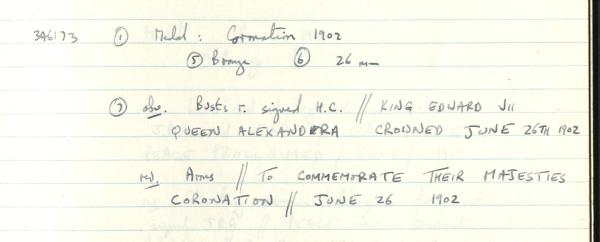 346173 ① Medal : Coronation 1902
⑤ Bronze ⑥ 26 mm
⑦ obv. Busts r. signed H.C. // KING EDWARD VII
QUEEN ALEXANDRA CROWNED JUNE 26TH 1902
rev. Arms // TO COMMEMORATE THEIR MAJESTIES
CORONATION // JUNE 26 1902